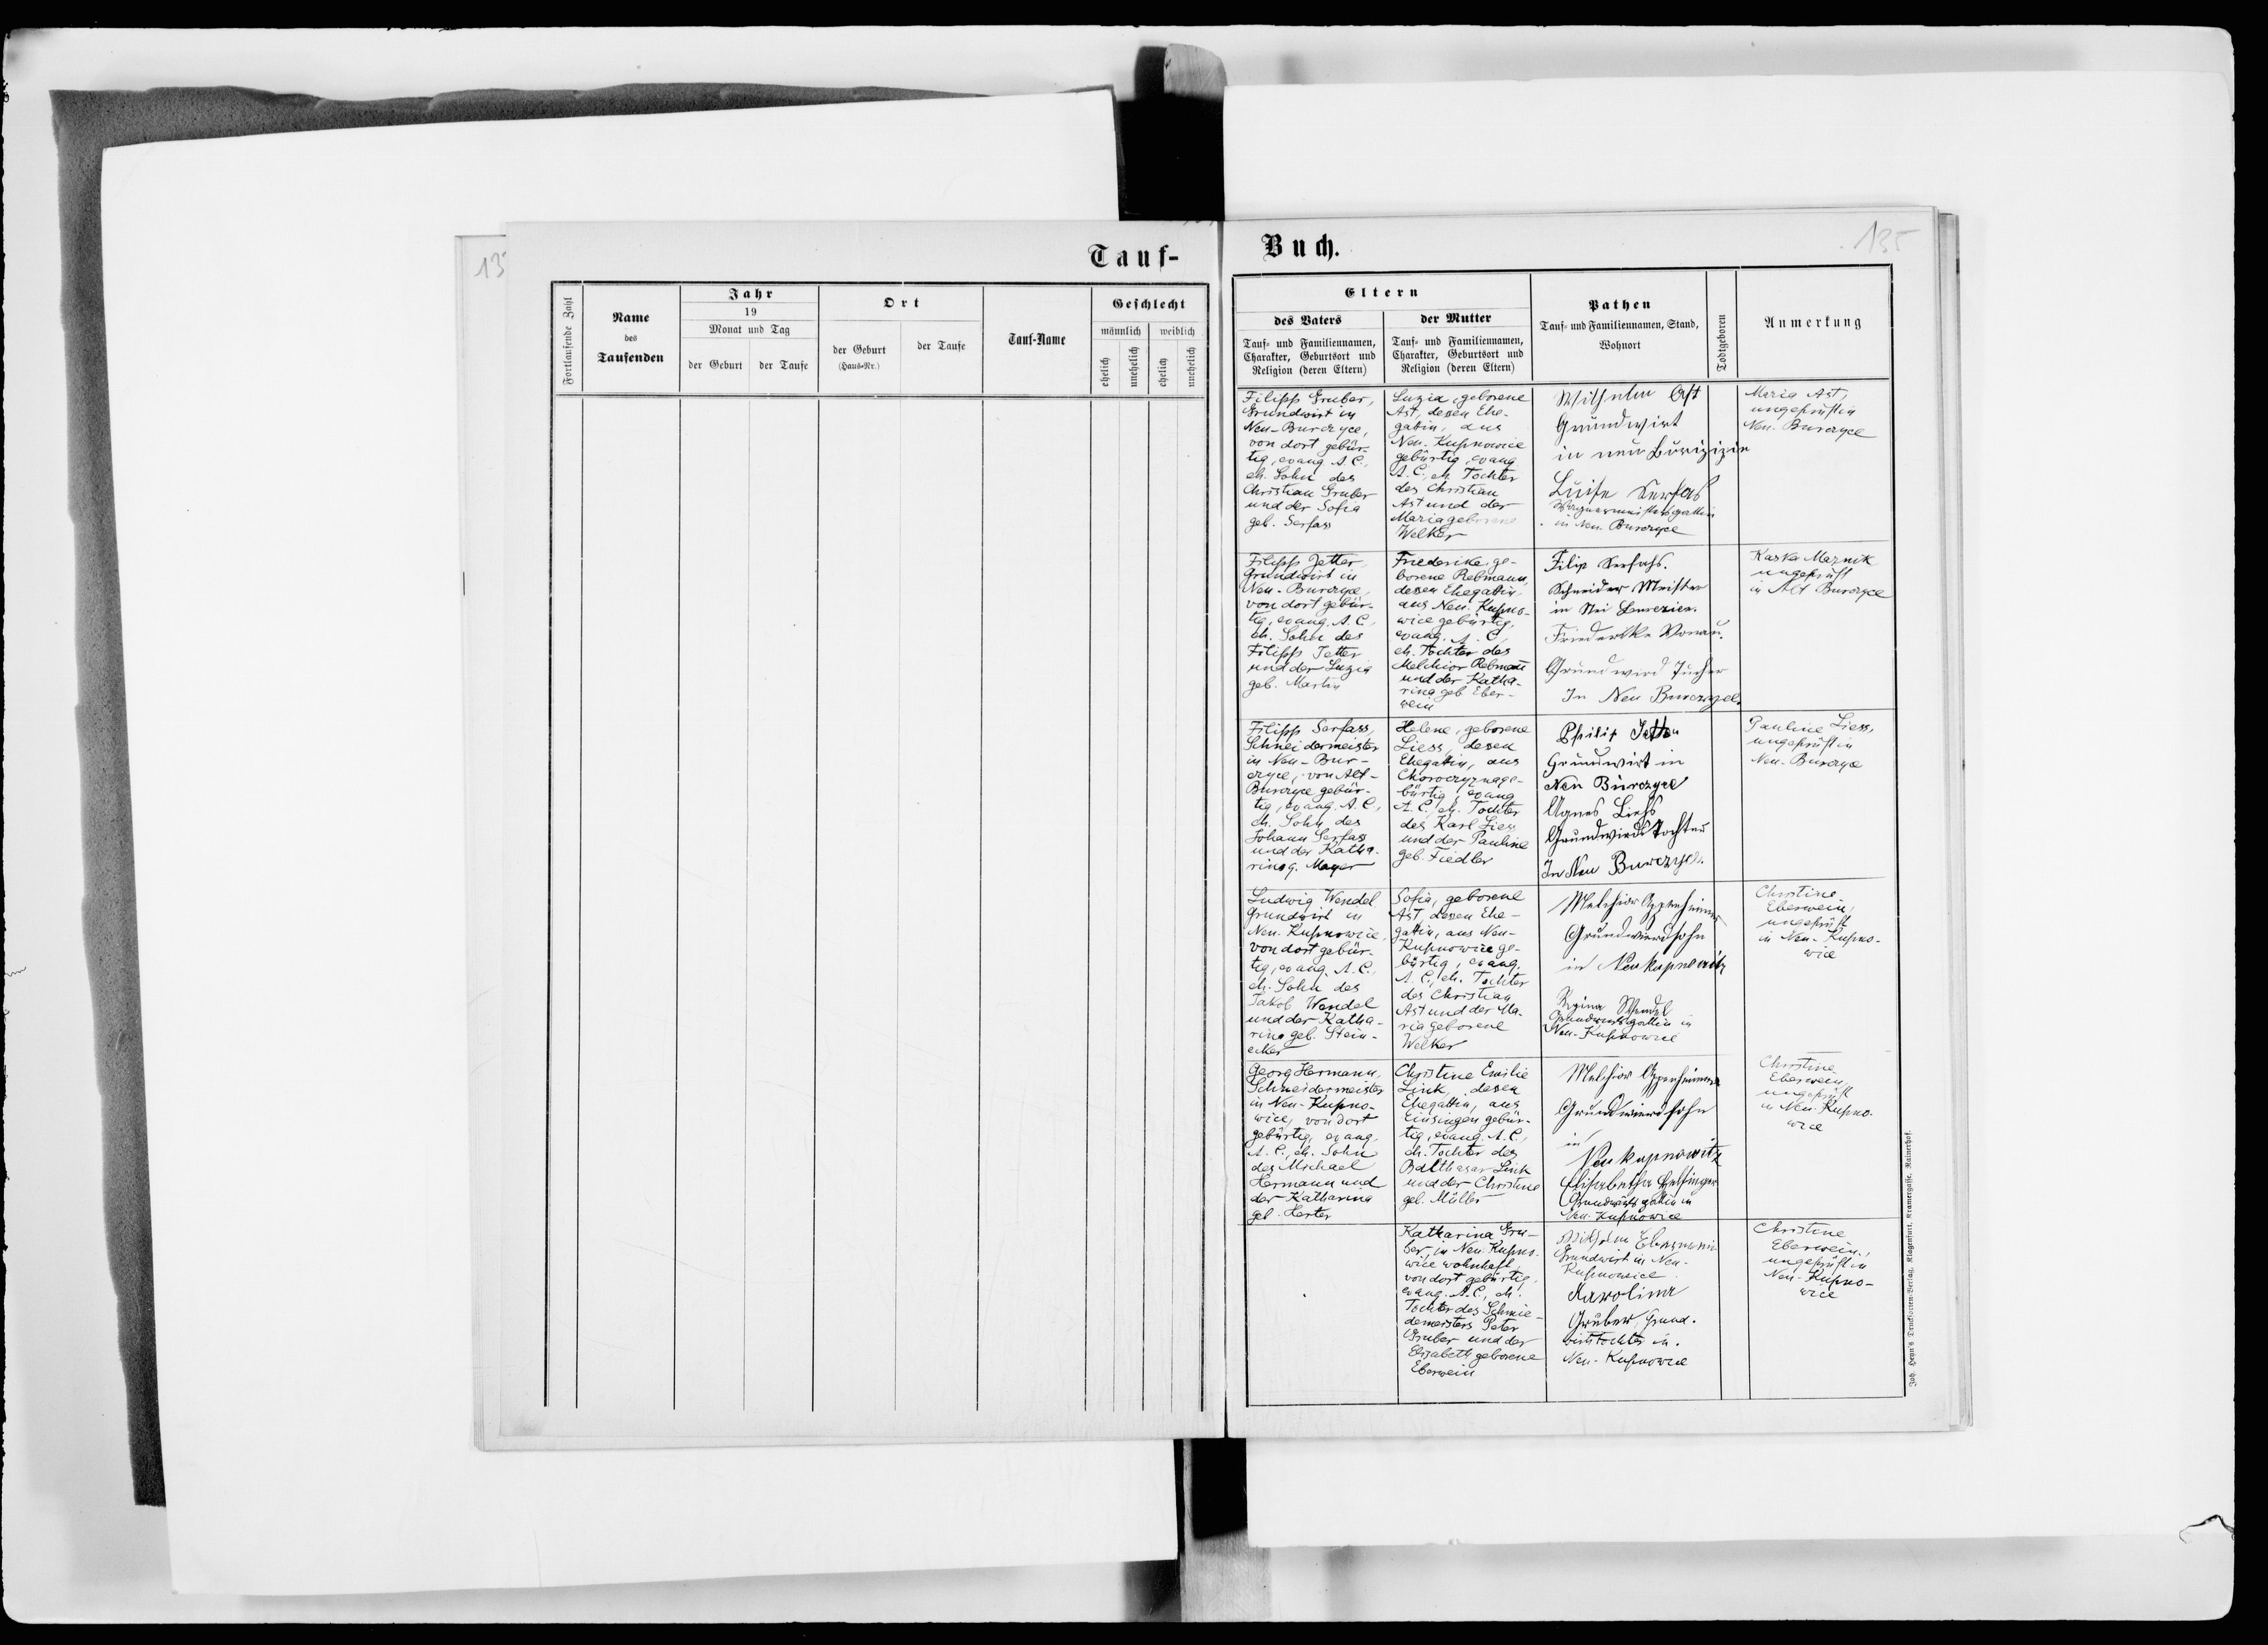 Tauf-
Buch.
135
13
Fortlaufende Zahl
Name
des
Taufenden
Jahr
19
Monat und Tag
der Geburt
der Taufe
Ort
der Geburt
(Haus-Nr.)
der Taufe
Tauf-Name
Geschlecht
männlich
weiblich
ehelich
unehelich
ehelich
unehelich
Eltern
des Vaters
Tauf- und Familiennamen,
Charakter, Geburtsort und
Religion (deren Eltern)
der Mutter
Tauf- und Familiennamen,
Charakter, Geburtsort und
Religion (deren Eltern)
Pathen
Tauf- und Familiennamen, Stand,
Wohnort
Todtgeboren
Anmerkung
Filipp Gruber,
Grundwirt in
Neu-Burczyce,
von dort gebür-
tig, evang. A. C.,
eh. Sohn des
Christian Gruber
und der Sofia
geb. Serfass
Luzia, geborene
Ast, dessen Ehe-
gatin, aus
Neu-Kupnowice
gebürtig, evang.
A. C., eh. Tochter
des Christian
Ast und der
Maria geborene
Welker
Wilhelm Ast
Grundwirt
in neu
Luise Serfas
in Neu Burczyce
Maria Ast,
ungeprüft in
Neu-Burczyce
Filipp Jetter,
Grundwirt in
Neu-Burczyce,
von dort gebür-
tig, evang. A. C.,
eh. Sohn des
Filipp Jetter
und der Luzia
geb. Martin
Friederike, ge-
borene Rebmann,
dessen Ehegattin,
aus Neu-Kupno-
wice gebürtig,
evang. A. C.,
eh. Tochter des
Melchior Rebman
und der Katha-
rina geb. Eber-
wein
Filip Serfahs.
Schneider Meister
in
Friederike
Grundwird
In Neu Burczyce.
Kaska Maznik
ungeprüft
in Alt Burczyce
Filipp Serfass,
Schneidermeister
in Neu-Bur-
czyce, von Alt-
Burczyce gebür-
tig, evang. A. C.,
eh. Sohn des
Johann Serfass
und der Katha-
rina g. Mayer
Helene, geborene
Liess, dessen
Ehegattin, aus
Chorocryzna ge-
bürtig, evang.
A. C., eh. Tochter
des Karl Liess
und der Pauline
geb. Fiedler
Philip Jetter
Grundwirt in
Neu Burczyce
Agnes Liehs
Grundwirds Tochter
In Neu Burczyce.
Pauline Liess,
ungeprüft in
Neu-Burczyce
Ludwig Wendel,
Grundwirt in
Neu-Kupnowice,
von dort gebür-
tig, evang. A. C.,
eh. Sohn des
Jakob Wendel
und der Katha-
rina geb. Stein-
ecker
Sofia, geborene
Ast, dessen Ehe-
gattin, aus Neu-
Kupnowice ge-
bürtig, evang.
A. C., eh. Tochter
des Christian
Ast und der Ma-
ria geborene
Welker
Melchior Oppenheimer
Grundwirdsohn
in Neukupnowitz
Regina Wendel
Grundwirtsgattin in
Neu-Kupnowice
Christine
Eberwein,
ungeprüft
in Neu-Kupno-
wice
Georg Hermann,
Schneidermeister
in Neu-Kupno-
wice, von dort
gebürtig, evang.
A. C., eh. Sohn
des Michael
Hermann und
der Katharina
geb. Herter
Christine Emilie
Link, dessen
Ehegattin, aus
Einsingen gebür-
tig, evang. A. C.,
eh. Tochter des
Balthasar Link
und der Christine
geb. Müller
Melchior Oppenheimer
Grundwirdsohn
in
Neukupnowitz
Elisabetha
Grundwirtsgattin in
Neu-Kupnowice
Christine
Eberwein,
ungeprüft
in Neu-Kupno-
wice
Katharina Gru-
ber, in Neu-Kupno-
wice wohnhaft,
von dort gebürtig,
evang. A. C., eh.
Tochter des Schmie-
demeisters Peter
Gruber und der
Elisabeth geborene
Eberwein
Wilhelm Eberwein
Grundwirt in Neu-
Kupnowice
Karolina
Gruber, Grund-
wirtstochter in
Neu-Kupnowice
Christine
Eberwein,
ungeprüft in
Neu-Kupno-
wice
Joh. Heyn's Drucksorten-Verlag, Klagenfurt, Kramergasse, Rainerhof.